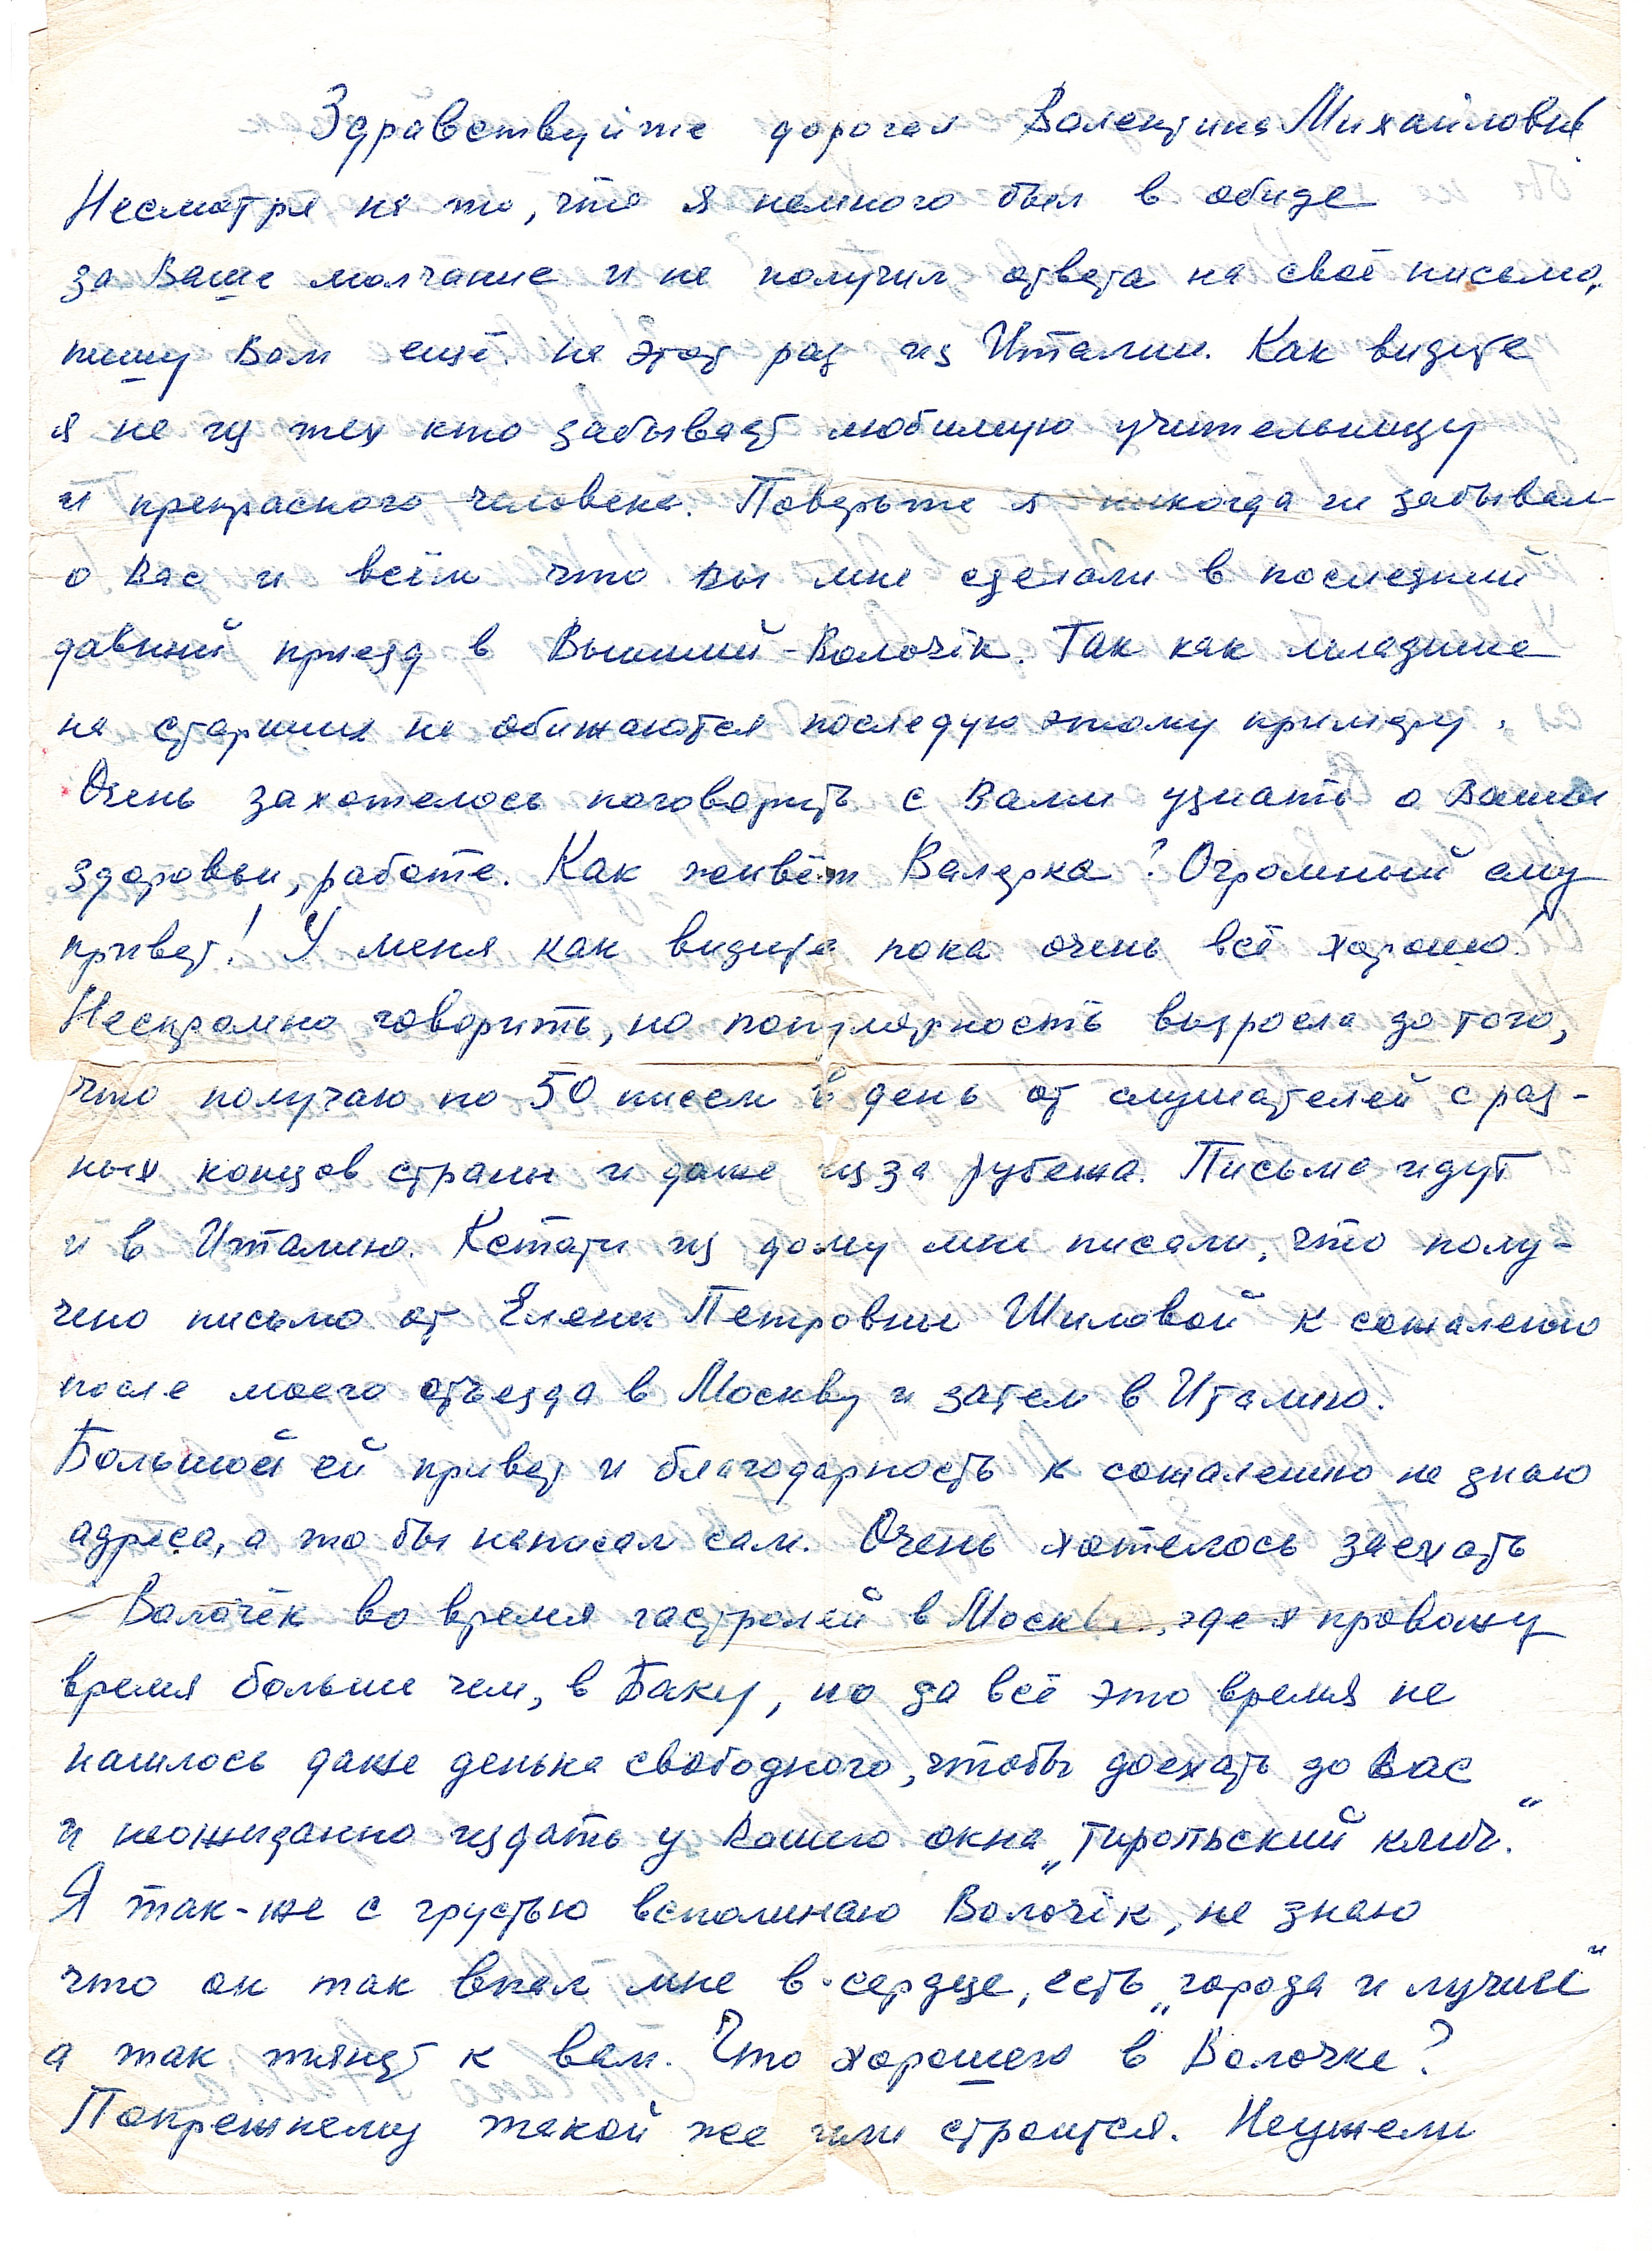 Здравствуйте дорогая Валентина Михайловна
Несмотря на то, что я немного был в обиде
за Ваше молчание и не получил ответа на своё письмо,
пишу Вам ещё. на этот раз из Италии. Как видите
я не из тех кто забывает любимую учительницу
и прекрасного человека. Поверьте я никогда не забывал
о Вас и всём что вы мне сделали в последний
давний приезд в Вышний-Волочёк. Так как младшие
на старших не обижаются последую этому примеру.
Очень захотелось поговорить с Вами узнать о Вашем
здоровьи, работе. Как живёт Валерка? Огромный ему
привет! У меня как видите пока очень всё хорошо!
Нескромно говорить, но популярность выросла до того,
что получаю по 50 писем в день от слушателей с раз-
ных концов страны и даже из за рубежа. Письма идут
и в Италию. Кстати из дому мне писали, что полу-
чено письмо от Елены Петровны Шиловой к сожалению
после моего отъезда в Москву и затем в Италию.
Большой ей привет и благодарность к сожалению не знаю
адреса, а то бы написал сам. Очень хотелось заехать
Волочёк во время гастролей в Москве, где я провожу
время больше чем, в Баку, но за всё это время не
нашлось даже денька свободного, чтобы доехать до Вас
и неожиданно издать у Вашего окна „тирольский клич."
Я так-же с грустью вспоминаю Волочёк, не знаю
что он так впал мне в сердце, есть „города и лучше"
а так тянет к вам. Что хорошего в Волочке?
Попрежнему такой же или строится. Неужели